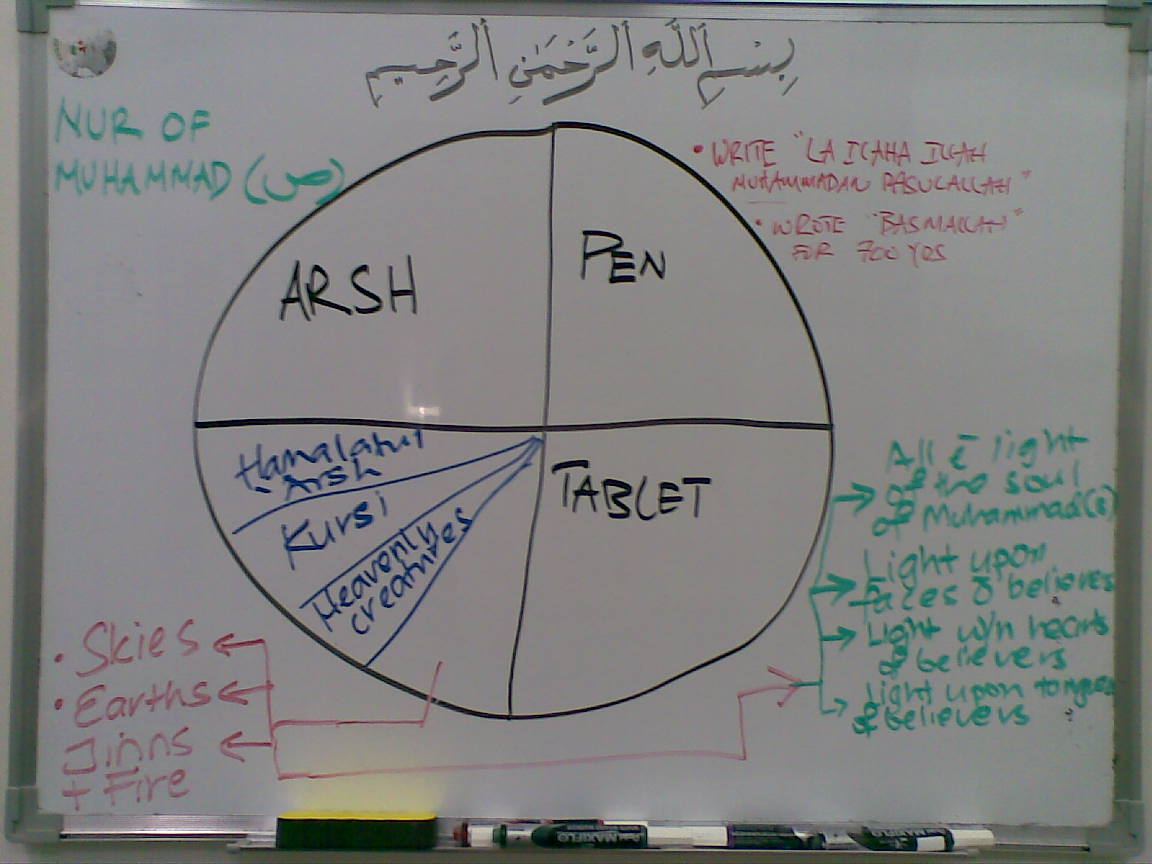 بِسْمِ اللَّهِ الرَّحْمَٰنِ الرَّحِيمِ
NUR OF
MUHAMMAD (ص)
• WRITE "LA ILAHA ILLAH
MUHAMMADAN RASULALLAH"
• WROTE "BASMALLAH"
FOR 700 YRS
ARSH
PEN
Hamalatul
Arsh
Kursi
Heavenly
creatures
TABLET
All ē light
of the soul
of Muhammad(s)
Light upon
faces of believers
Light w/n hearts
of believers
Light upon tongues
of believers
• Skies
• Earths
Jinns
+ Fire